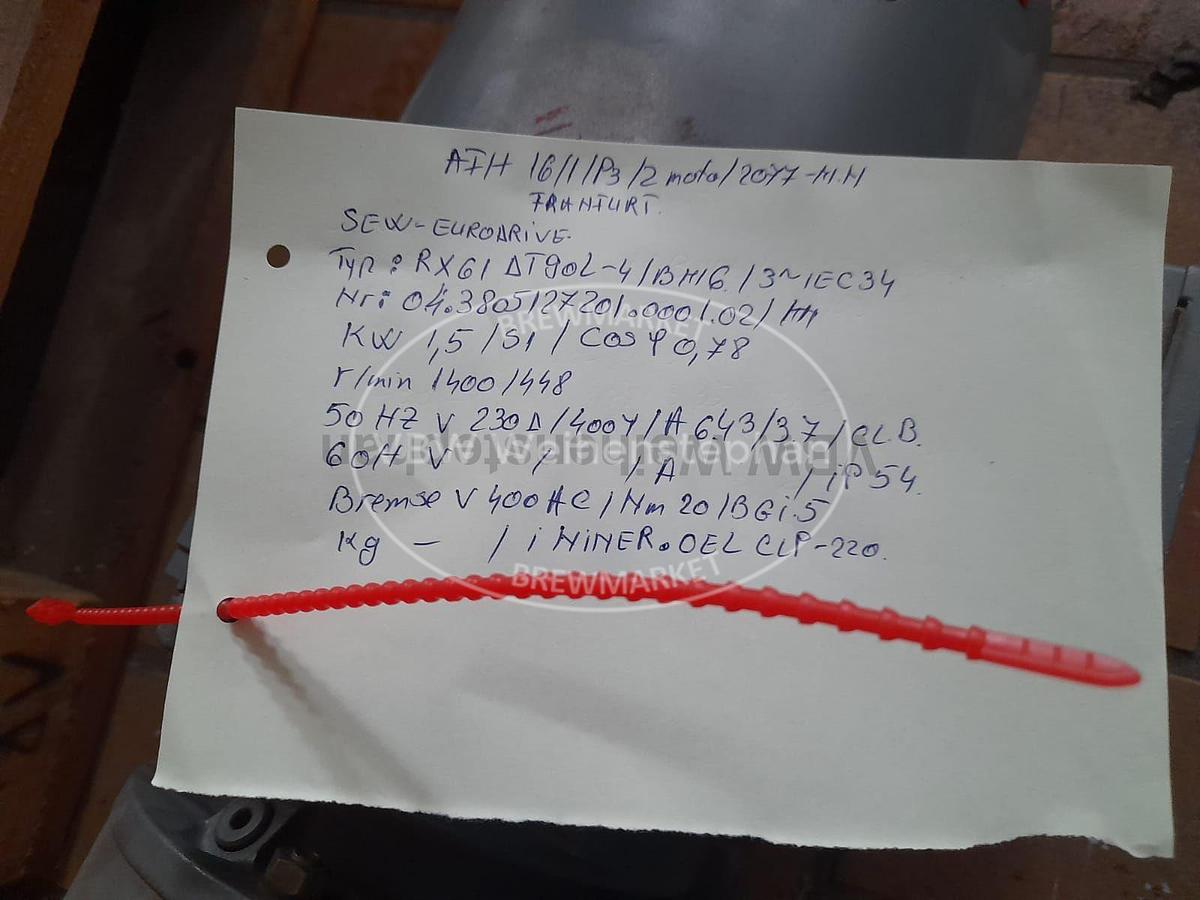 ATH 16/1/P3/2 moto/2077-M.M
FRANFURT.
SEW-EURODRIVE.
Typ: RX61 DT90L-4/BM16./3~IEC34
Nr: 04.3805127201.0001.02/
KW 1,5 /S1 / Cos φ 0,78
r/min 1400/448
50 HZ V 230Δ/400Y/A 6.43/3.7/CL.B.
60H V / /A /iP54.
Bremse V 400AC/Nm 20/BGi.5
Kg – / i MiNER.OEL CLP-220.
BREWMARKET
BVS Weihenstephan
BREWMARKET